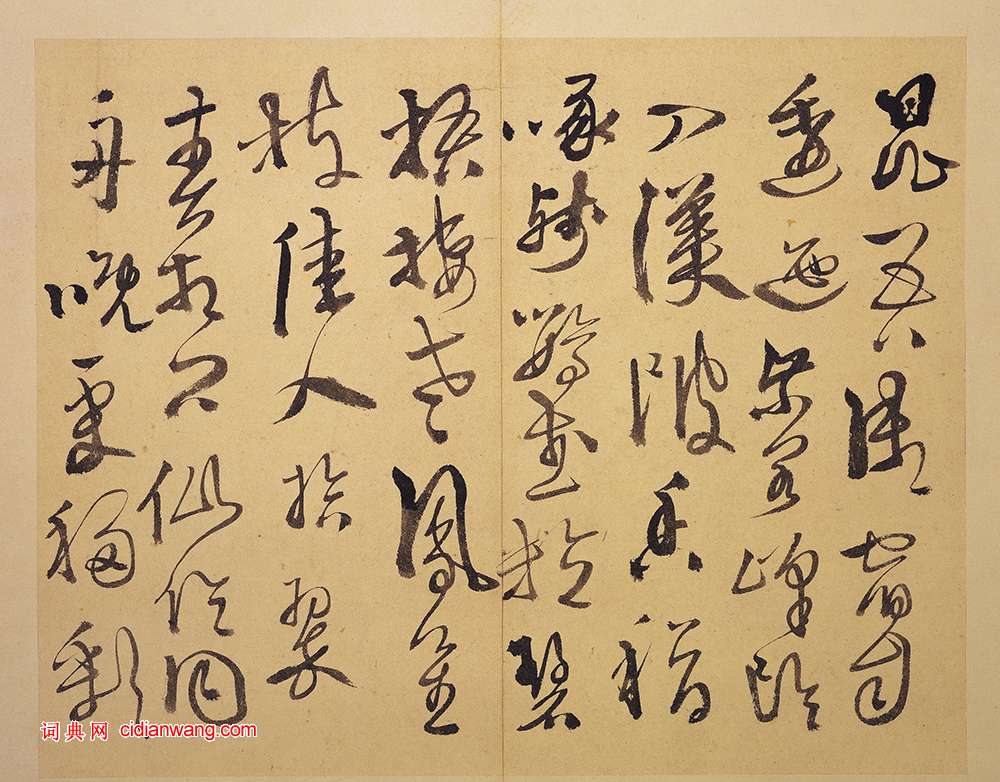 昆吾御宿自
逶迤紫閣峰陰
入渼陂香稻
啄殘鸚鵡粒碧
梧棲老鳳皇
枝佳人拾翠
春相問仙侶同
舟晚更移彩
词典网 cidianwang.com